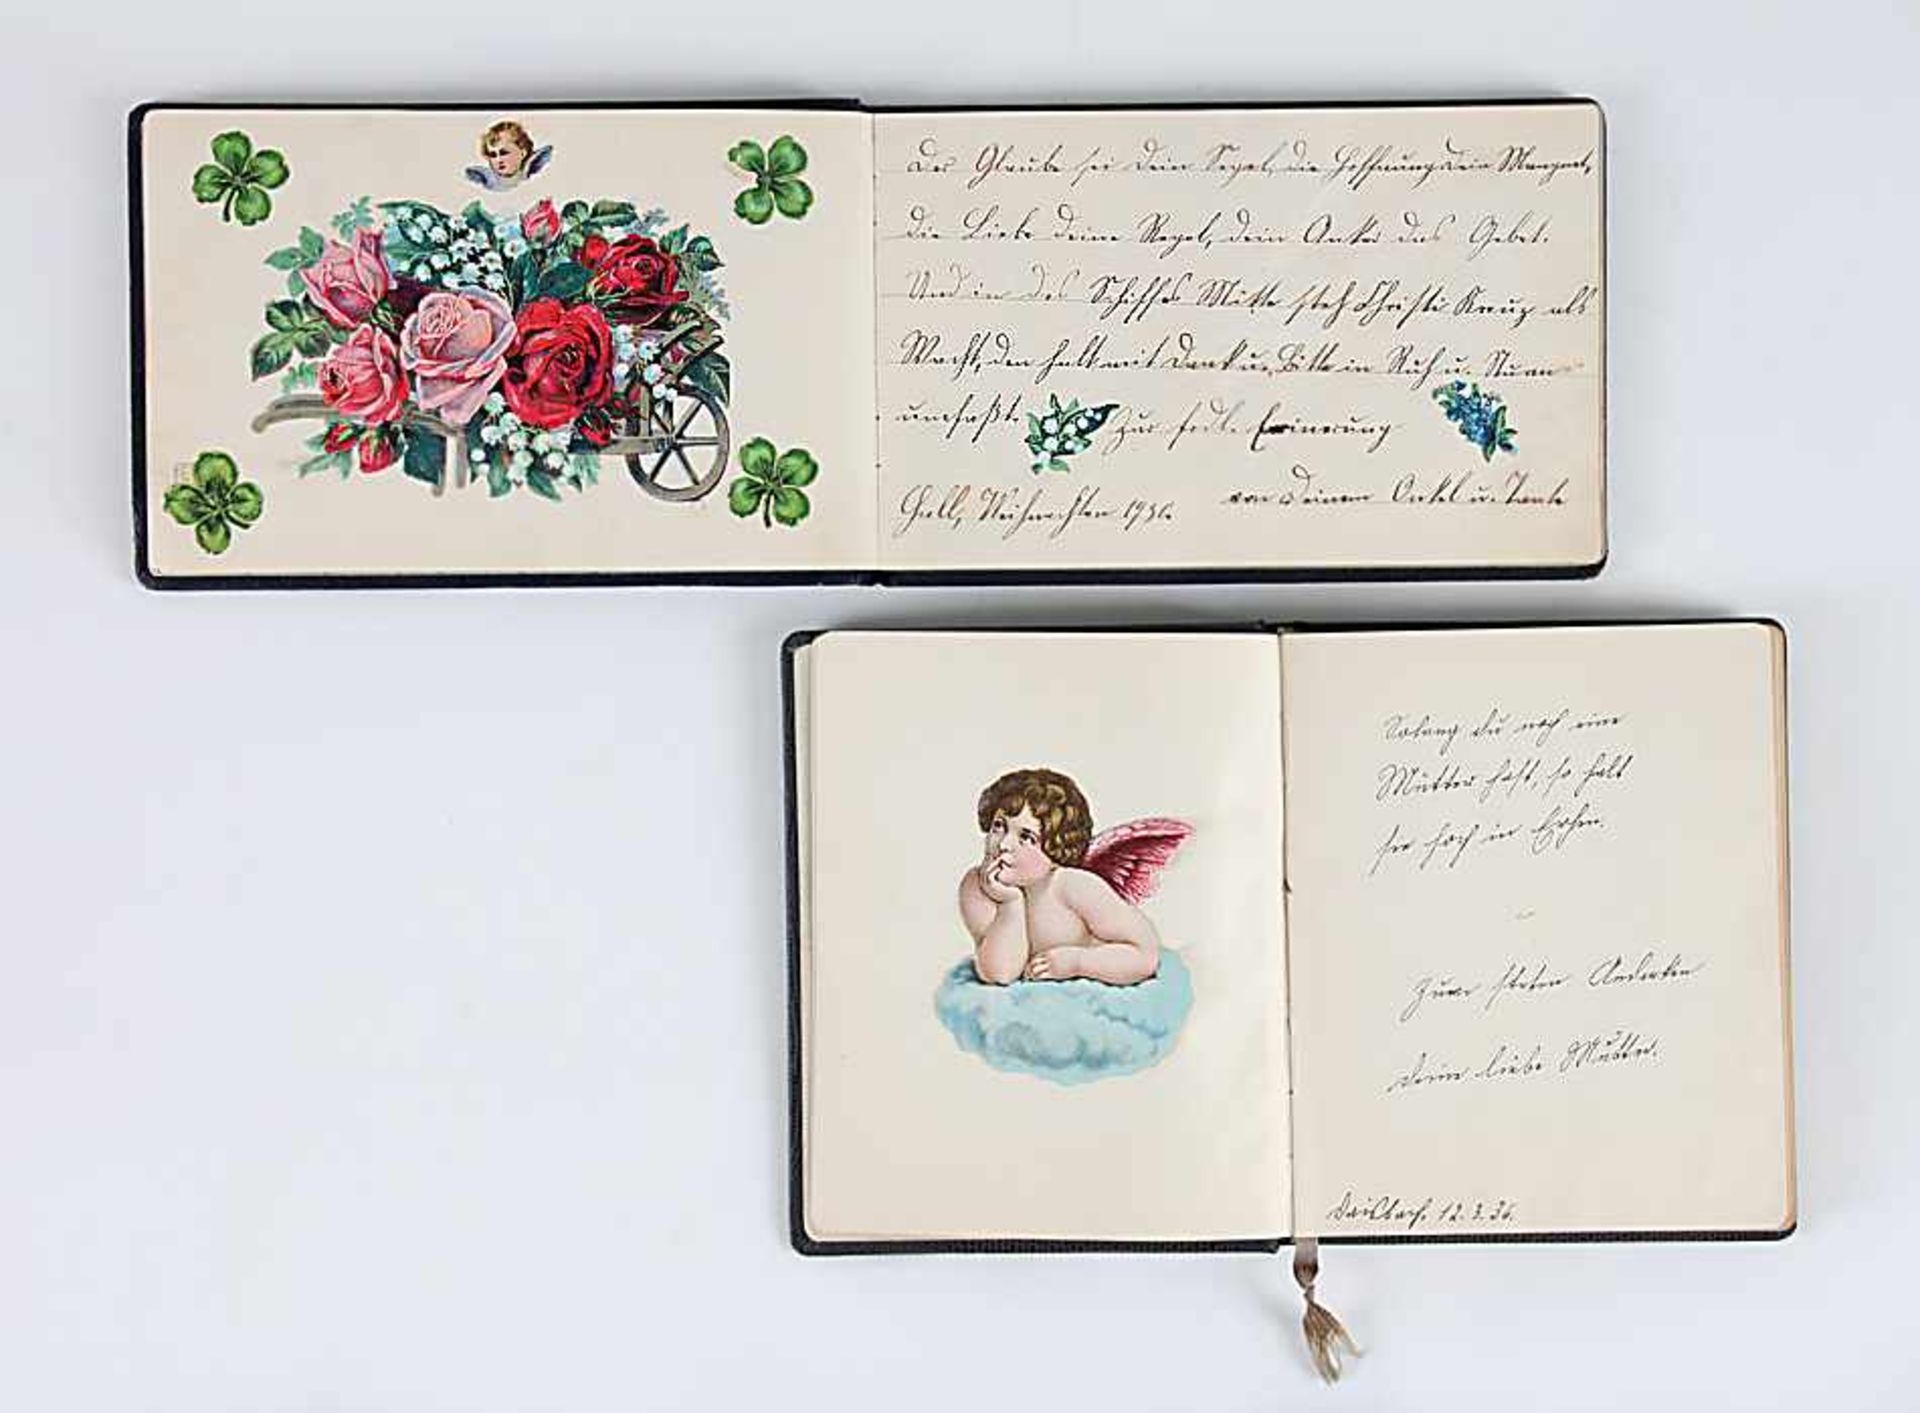 Der Glaube sei Dein Segel, die Hoffnung Dein
die Liebe deine Regel, dein Anker das Gebet.
Und in des Schiffes Mitte steh Christi Kreuz als
Mast, den halt mit Dank u. Bitte in Ruh u. Sturm
umfaßt. Zur frdl. Erinerung
von Deinem Onkel u. Tante
Hall, Weihnachten
Solang du noch eine
Mutter hast, so halt
sie hoch in Ehren.
Zum steten Andenken
deine liebe Mutter.
Daisbach. 12.3.36.